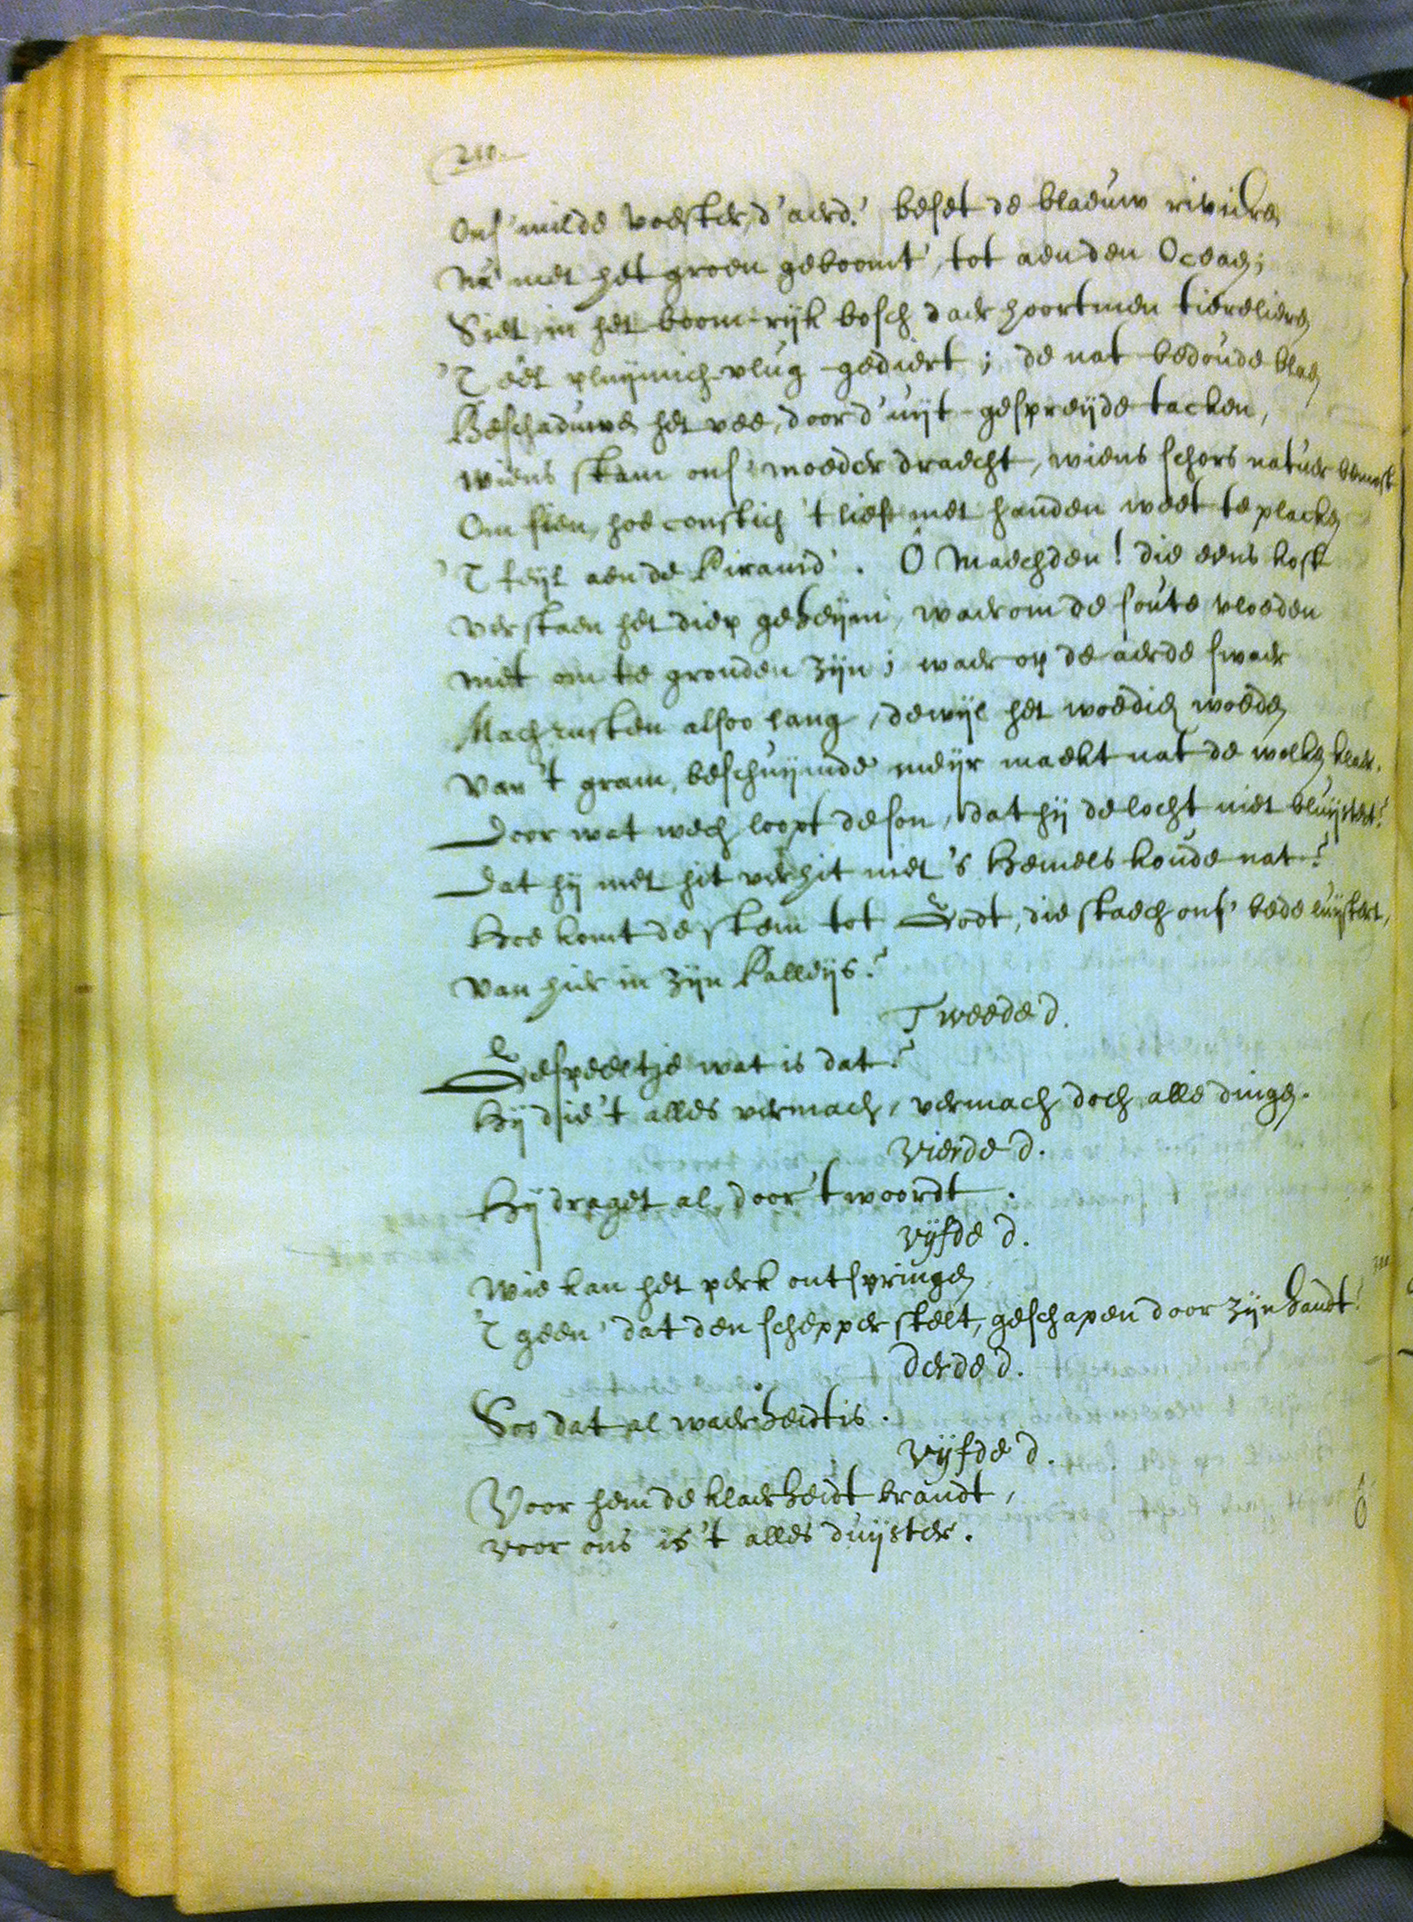 210.
Ons' milde voester, d'aerd', beset de blaeuw rivieren
Nu met het groen geboomt', tot aen den Oceaen;
Siet, in het boom-rijk bosch daer hoortmen tierelieren
'T eêl pluijmich-vlug gediert; de nat bedoude blaen
Beschaduwen het vee, door d'uijt-gespreijde tacken,
wiens stam ons' moeder draecht, wiens schors natuer bemost
Om sien, hoe constich 't lief met handen weet te placken
'T feijl aen de Piramid'. Ô Maechden! die eens kost
verstaen het diep geheijm, waerom de soute vloeden
niet om te gronden zijn; waer op de aerde swaer
Mach rusten alsoo lang, dewijl het woedich woeden
van 't gram, beschuijmde meijr maekt nat de wolken klaer.
Door wat wech loopt de son, dat hij de locht niet bluijstert?
Dat hij met hit verhit niet 's Hemels koude nat?
Hoe komt de stem tot Godt, die staech ons' bede luijstert,
van hier in zijn Palleijs?
Tweede d.
Gespeeltje wat is dat?
Hij die 't alles vermach, vermach doch alle dingen.
Vierde d.
Hij draget al, door 't woordt.
Vijfde d.
Wie kan het perk ontspringen
'T geen' dat den schepper stelt, geschapen door zijn handt?
Derde d.
Soo dat al waerheidt is.
Vijfde d.
Voor hem de klaerheidt brandt,
voor ons is 't alles duijster.